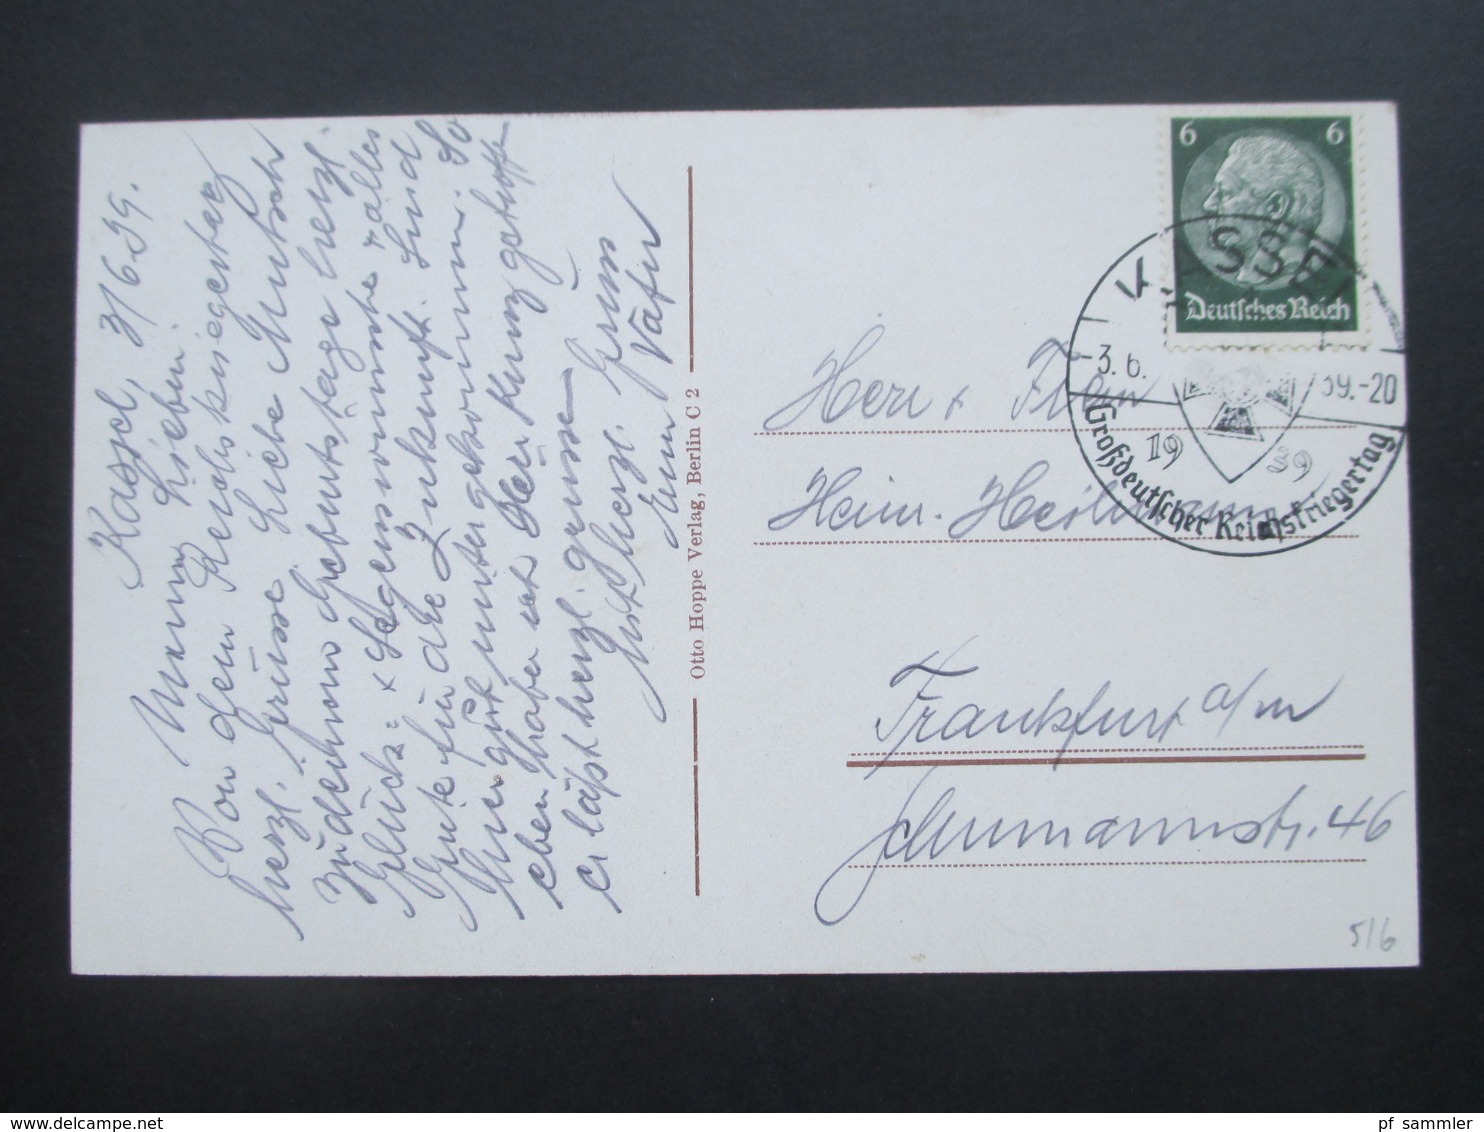 Kassel, 3/6.39.
Meine Lieben!
Von dem Reichskriegertag
herzl. Grüsse. Liebe Mutsch
zu deinem Geburtstage herzl.
Glück= & Segenswünsche & alles
Gute für die Zukunft. Sind
hier gut untergekommen. So
eben haben wir Herr Kunz getroffen
er lässt herzl. grüssen
Mit herzl. Gruss
Euer Vater
Otto Hoppe Verlag, Berlin C 2
6 6
Deutsches Reich
KASSEL
3.6. 39.-20
1939
Großdeutscher Reichskriegertag
Herr & Frau
Heinr. Heilmann
Frankfurt a/m
Schumannstr. 46
5/6
www.delcampe.net
pf_sammler